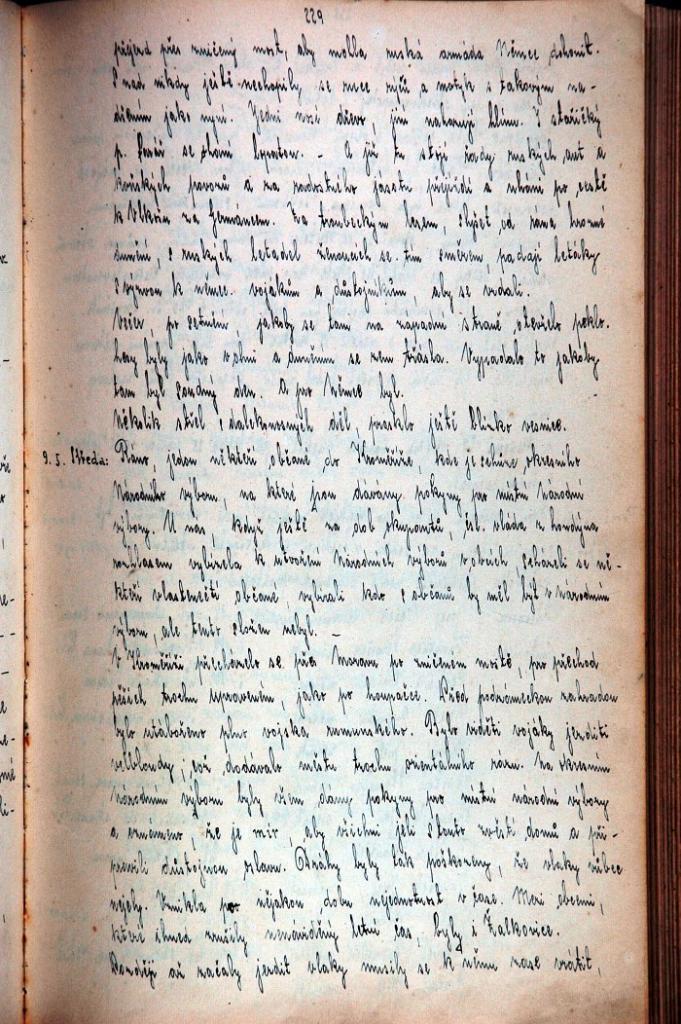 229
přejezd přes zničený most, aby mohla ruská armáda Němce dohonit.
Snad nikdy ještě nechopily se ruce rýčů a motyk s takovým na-
dšením jako nyní. Jedni nosí dřevo, jiní nahazují hlínu. I stařičký
p. farář se shání lopatou. – A již tu stojí řady ruských aut a
koňských povozů a za radostného jásotu přejíždí a uhání po cestě
k Vlkoši za Germánem. Za troubeckým lesem, slyšet od rána hrozné
dunění, s ruských letadel ženoucích se tím směrem padají letáky
s vyzvou k němec. vojákům a důstojníkům, aby se vzdali.
Večer, po setmění jakoby se tam na západní straně otevřelo peklo.
hory byly jako v ohni a duněním se zem třásla. Vypadalo to jakoby
tam byl soudný den. A pro Němce byl.
Několik střel z dalekonosných děl, prasklo ještě blízko vesnice.
9. 5. Středa: Ráno, jedou někteří občané do Kroměříže, kde je schůze okresního
Národního výboru, na které jsou dávány pokyny pro místní národní
výbory. U nás, když ještě za dob okupantů, čsl. vláda z Londýna
rozhlasem vybízela k utvoření Národních výborů v obcích, scházeli se ně-
kteří vlastenečtí občané, vybírali kdo z občanů by měl být v Národním
výboru, ale tento složen nebyl. –
V Kroměříži přecházelo se přes Moravu po zničeném mostě, pro přechod
pěších trochu upraveném, jako po houpačce. Před podzámeckou zahradou
bylo utábořeno plno vojska rumunského. Bylo viděti vojáky jezditi
velbloudy i, což dodávalo městu trochu orientálního rázu. Na okresním
národním výboru byly všem dány pokyny pro místní národní výbory
a oznámeno, že je mír, aby všichni jeli s touto zvěstí domů a při-
pravili důstojnou oslavu. Dráhy byly tak poškozeny, že vlaky vůbec
nejely. Vznikla po nějakou dobu nejednotnost v čase. Mezi obcemi,
které ihned zrušily nenáviděný letní čas, byly i Žalkovice.
Později až začaly jezdit vlaky musily se k němu zase vrátit,